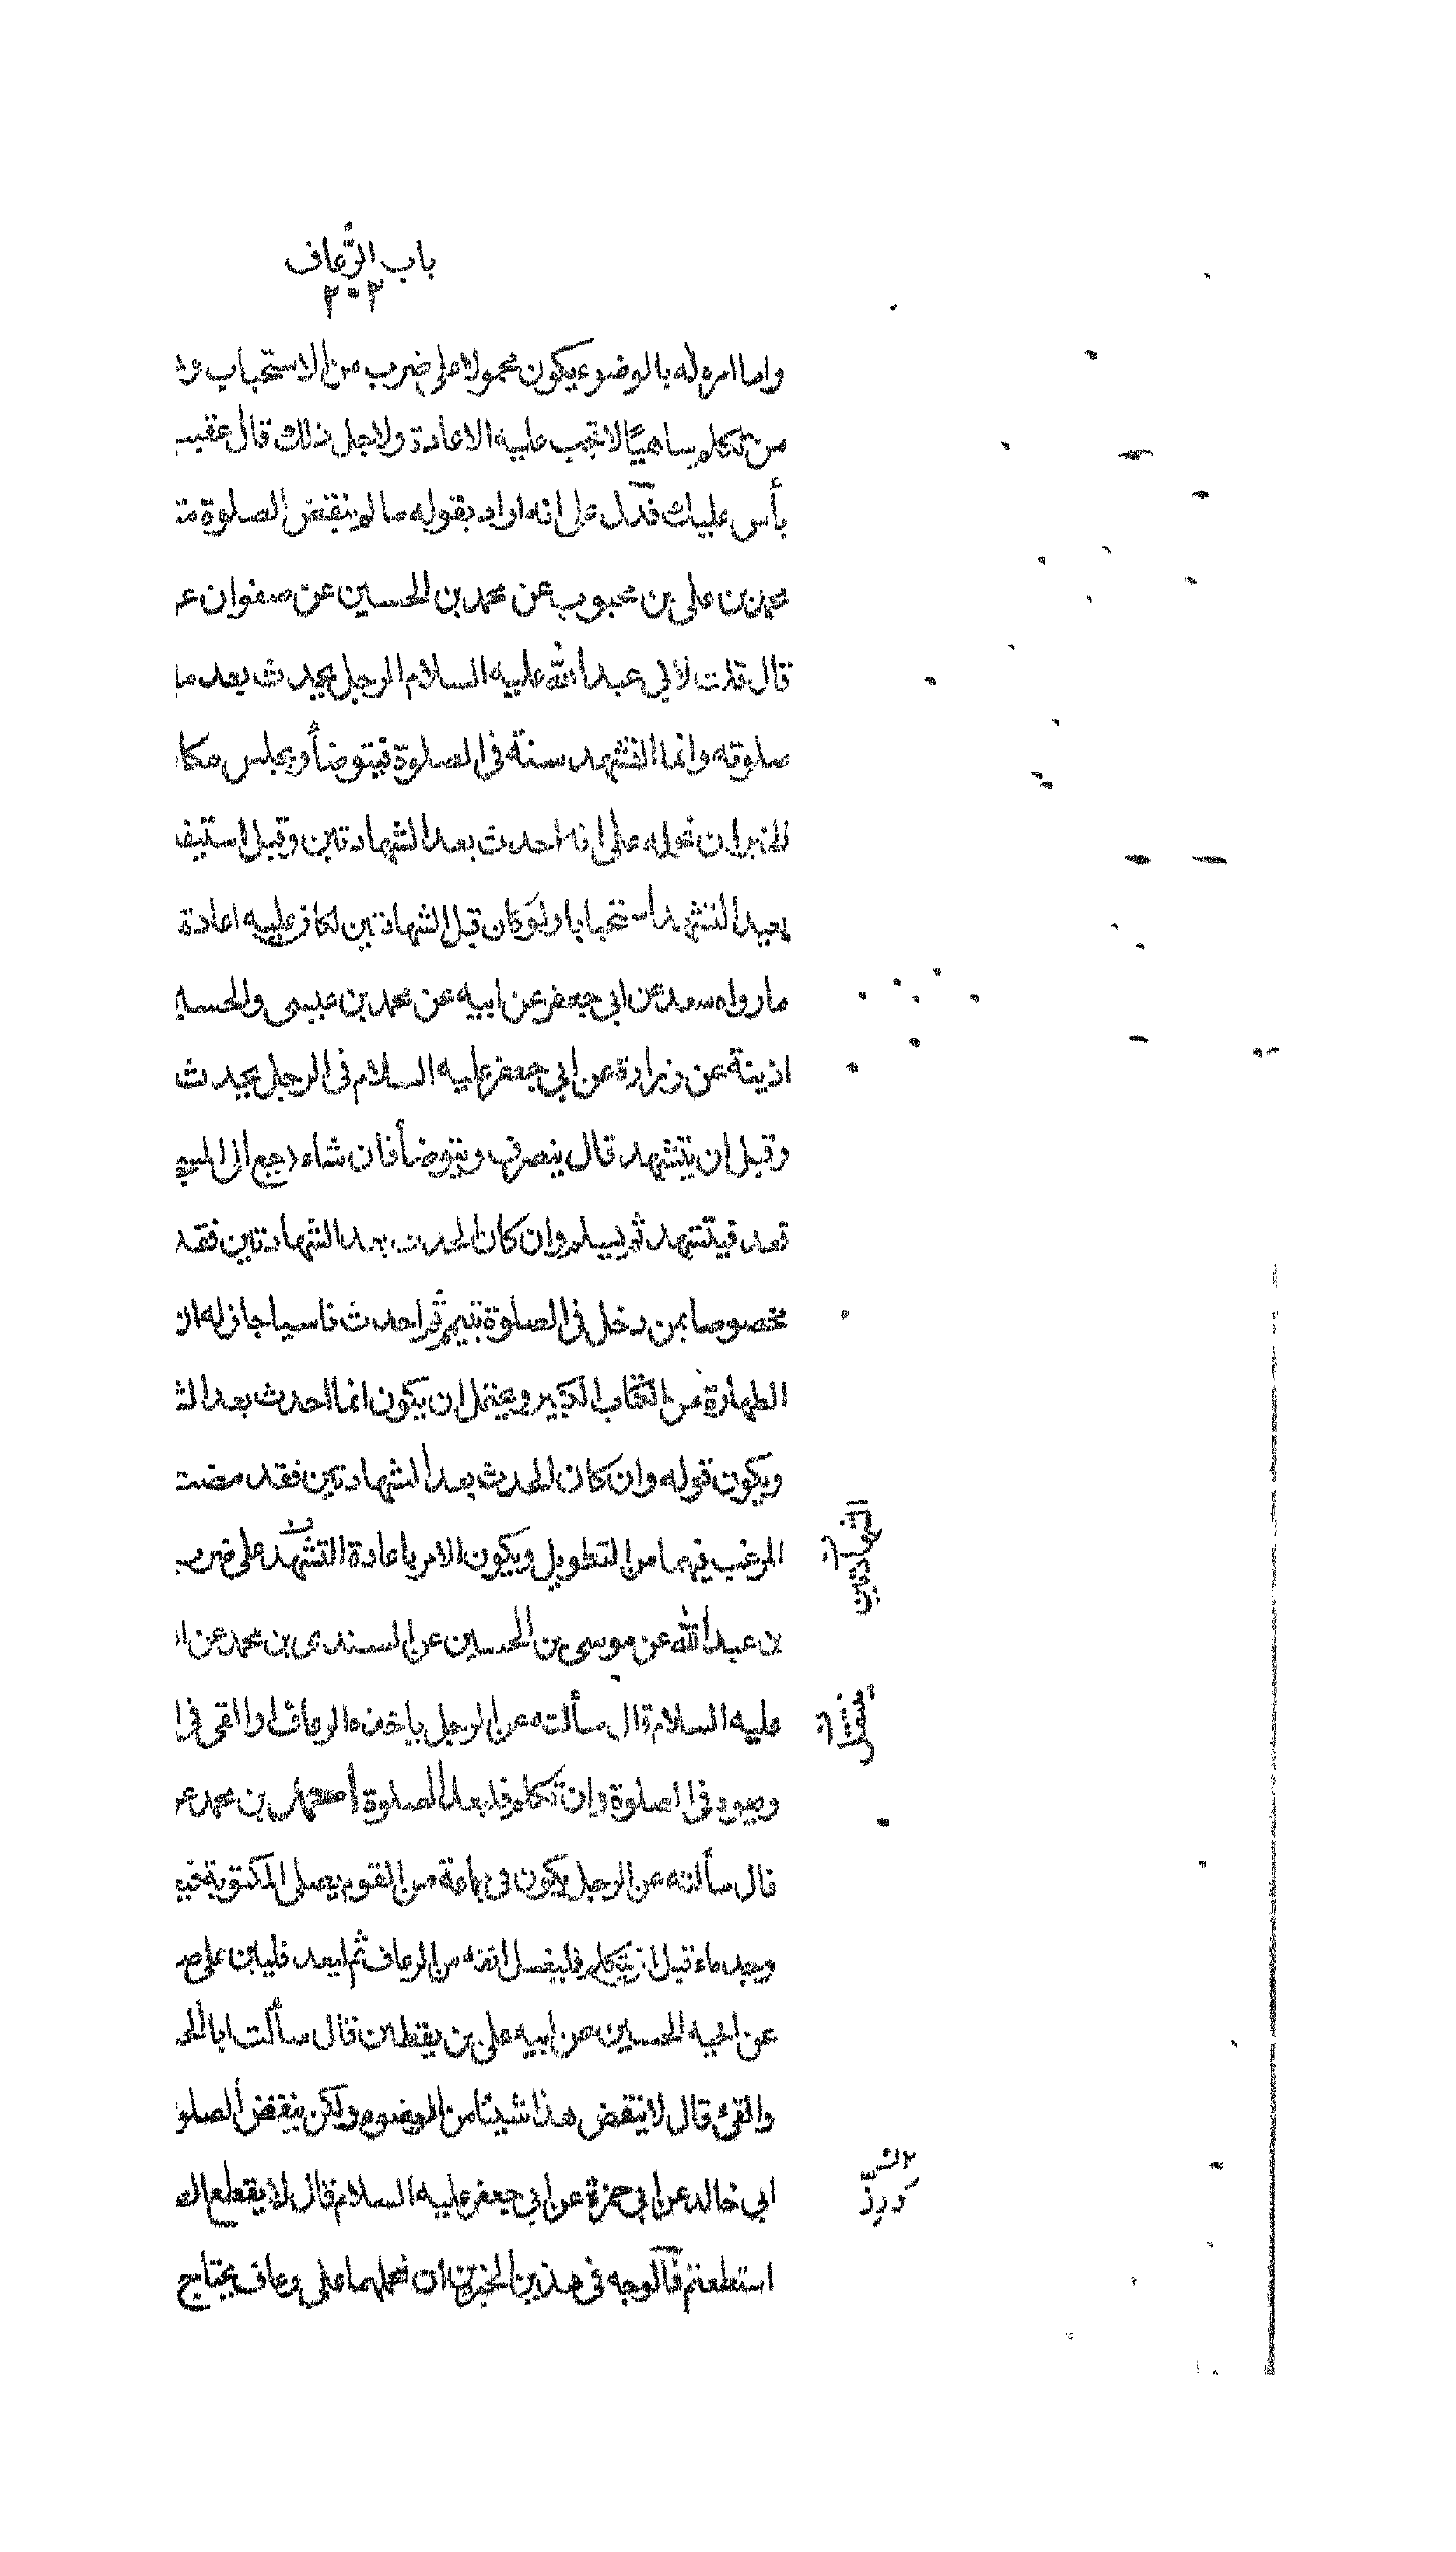 باب الرُّعاف
٢٠٢
واما امره له بالوضوء يكون محمولا على ضرب من الاستحباب و
من تكلم ساهيًا لا تجب عليه الاعادة ولاجل ذلك قال عقيب
بأس عليك فدل على انه اراد بقوله ما لم ينقض الصلوة
محمد بن على بن محبوب عن محمد بن الحسين عن صفوان عن
قال قلت لابي عبد الله عليه السلام الرجل يحدث بعد ما
صلوته وانما التشهد سنة فى الصلوة فيتوضأ ويجلس مكا
الخبر ان نحمله على انه احدث بعد الشهادتين وقبل استيفـ
يعيد التشهد استحبابا ولو كان قبل الشهادتين لكان عليه اعادة
ما رواه سعد عن ابى جعفر عن ابيه عن محمد بن عيسى والحسـ
اذينة عن زرارة عن ابي جعفر عليه السلام فى الرجل يحدث
وقبل ان يتشهد قال ينصرف ويتوضأ فان شاء رجع الى المسجد
قعد فيتشهد ثم يسلم وان كان الحدث بعد الشهادتين فقد
مخصوصا بمن دخل فى الصلوة بتيمم ثم احدث ناسيا جاز له ان
الطهارة من الكتاب الكبير ويحتمل ان يكون انما احدث بعد الشـ
ويكون قوله وان كان الحدث بعد الشهادتين فقد مضت
المرغب فيهما من التطويل ويكون الامر باعادة التشهد على ضرب
الشهادتين
بن عبد الله عن موسى بن الحسين عن السندى بن محمد عن ا
عليه السلام قال سألته عن الرجل ياخذه الرعاف او القى فى ا
ويعود فى الصلوة وان تكلم فليعد الصلوة بن محمد عن
قال سألته عن الرجل يكون فى جماعة من القوم يصلى المكتوبة فيعـ
وجد ماء قبل ان يتكلم فليغسل انفه من الرعاف ثم ليعد فليبن على صـ
عن اخيه الحسين عن ابيه على بن يقطين قال سألت ابا الحـ
والقئ قال لا ينقض هذا شيئا من الوضوء ولكن ينقض الصلو
ابي خالد عن ابي حمزة عن ابي جعفر عليه السلام قال لا يقطع الصـ
استطعتم فالوجه فى هذين الخبرين ان نحملهما على رعاف يحتاج